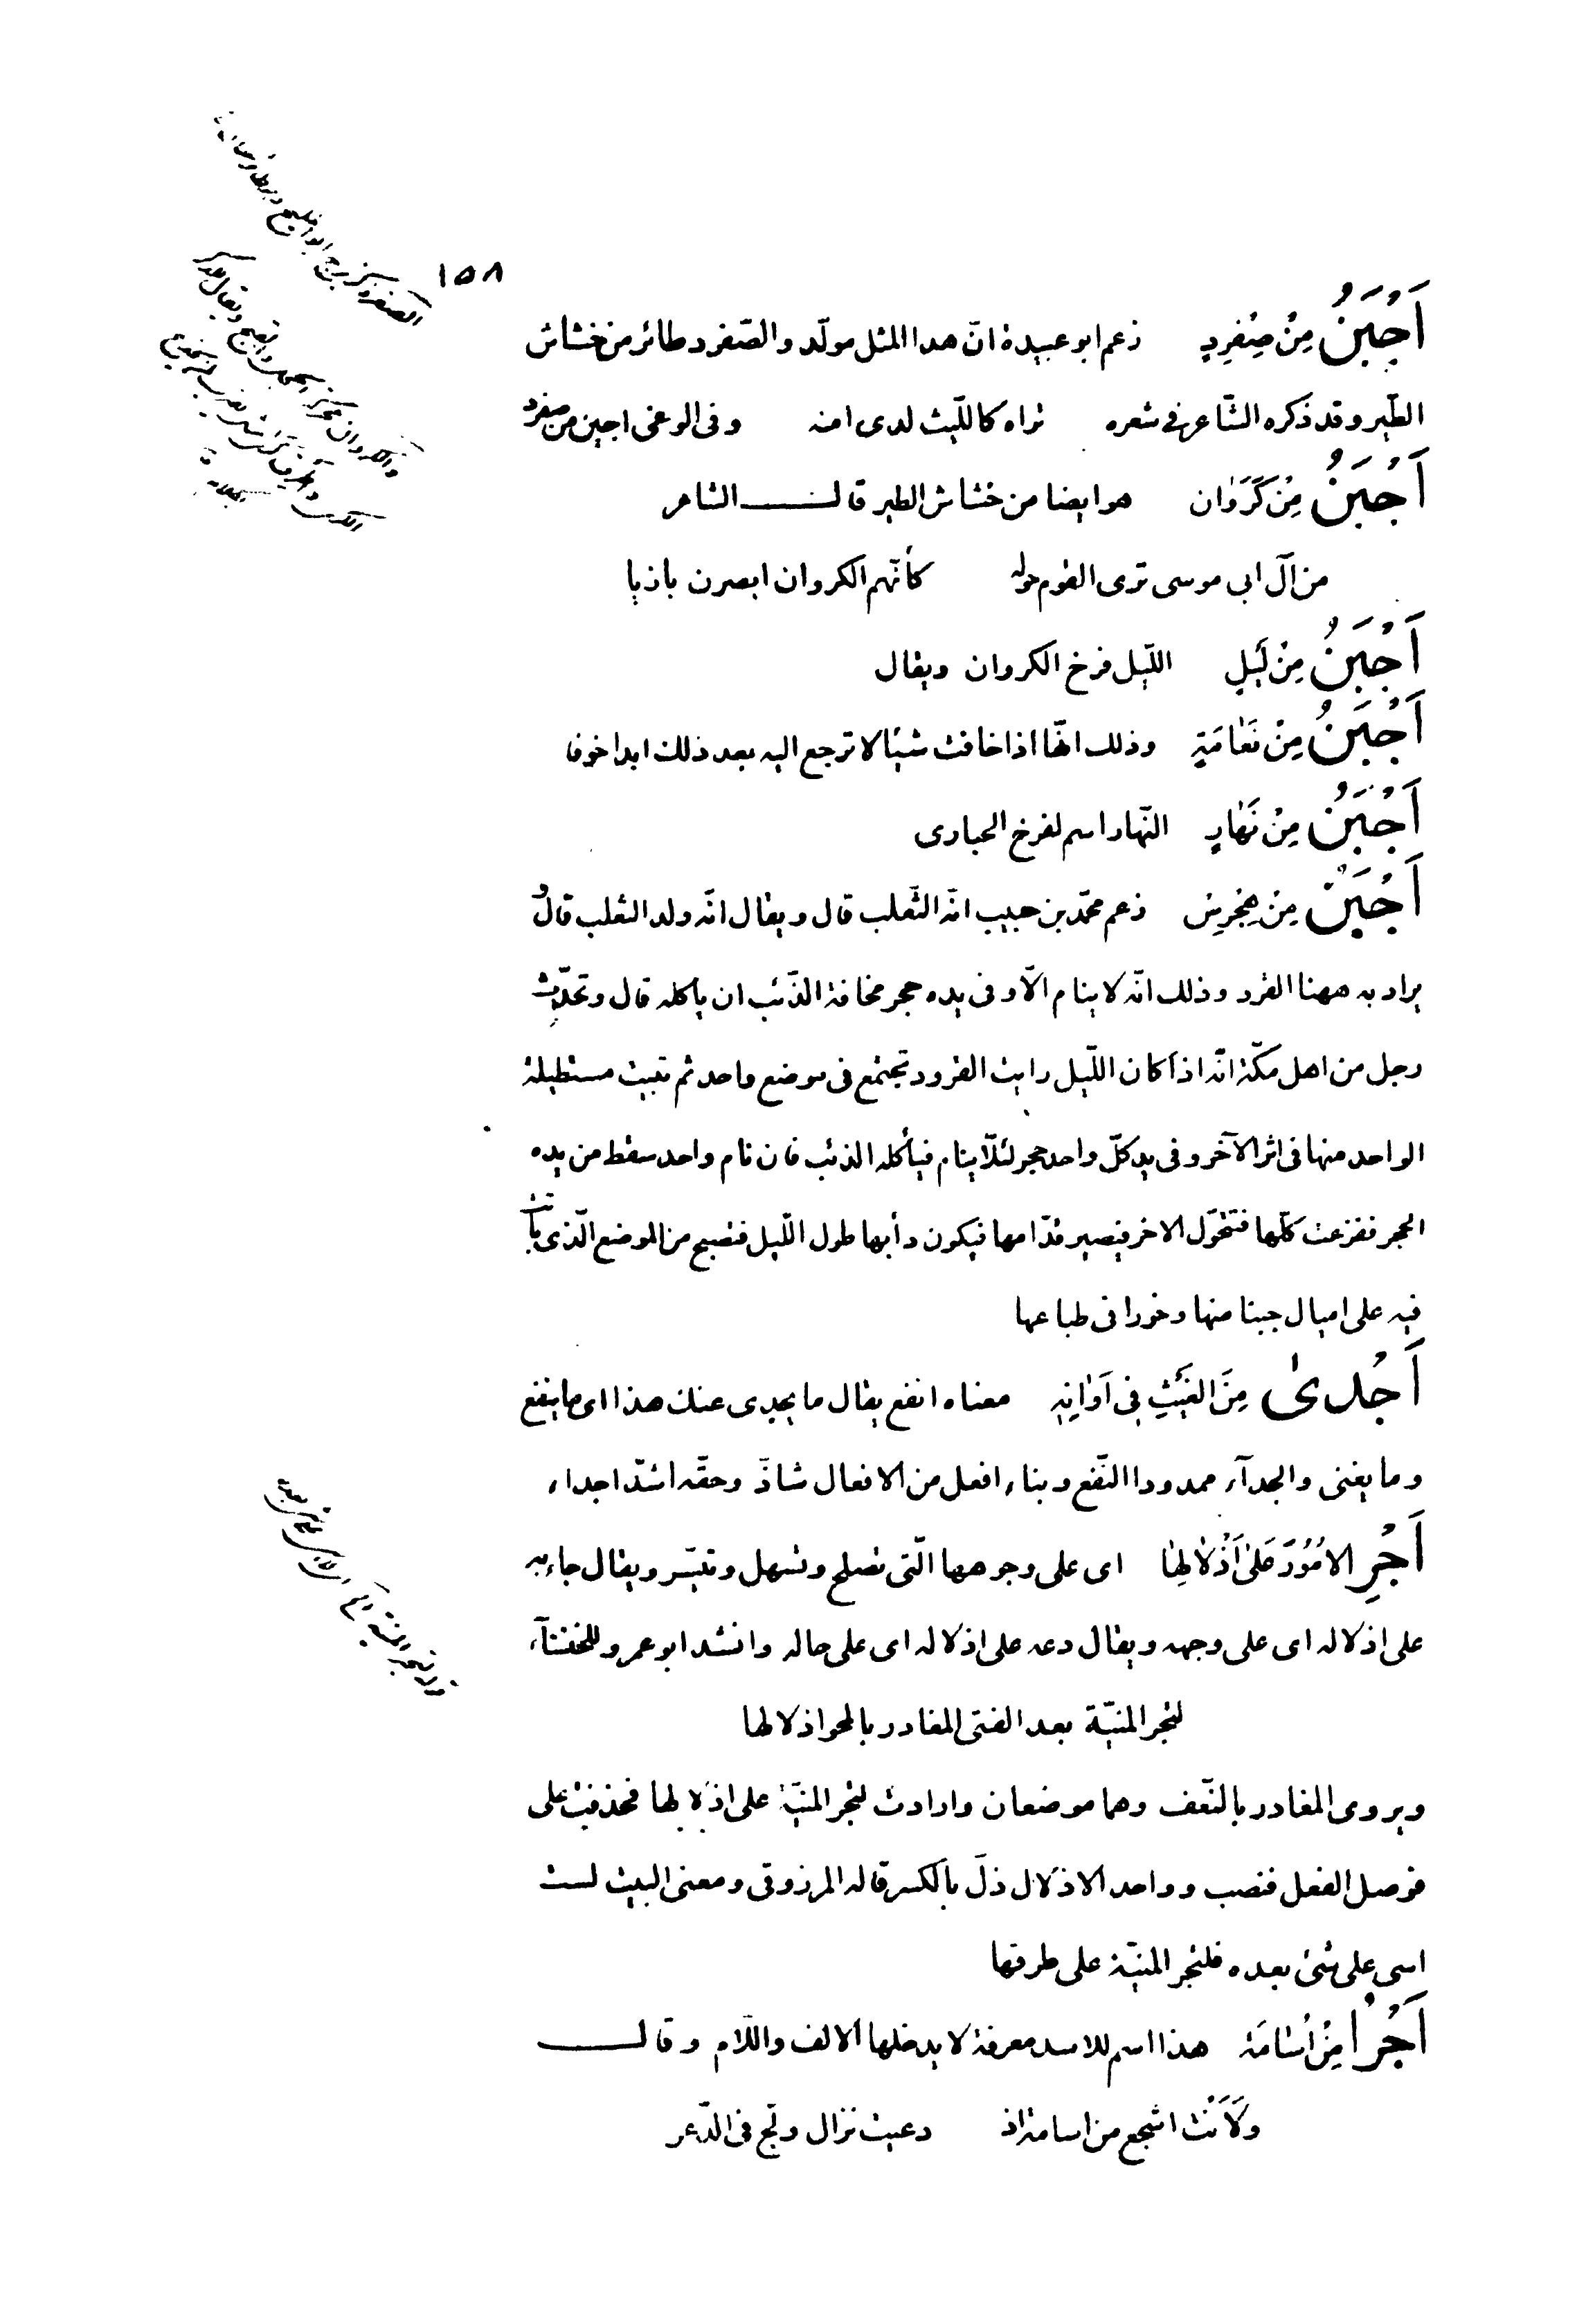 ١٥٨
اَجْبَنُ مِنْ صِفْرِدٍ زعم ابو عبيدة انّ هذا المثل مولّد والصّفرد طائر من خشاش
الطّير وقد ذكره الشّاعر فى شعره تراه كاللّيث لدى امنه وفى الوغى اجبن من صفرد
اَجْبَنُ مِنْ كَرَوَان هو ايضا من خشاش الطير قال الشاعر
من آل ابى موسى ترى القوم حوله كأنّهم الكروان ابصرن بازيا
اَجْبَنُ مِنْ لَيْلٍ اللّيل فرخ الكروان ويقال
اَجْبَنُ مِنْ نَعَامَةٍ وذلك انّها اذا خافت شيئا لا ترجع اليه بعد ذلك ابدا خوفا
اَجْبَنُ مِنْ نَهَارٍ النّهار اسم لفرخ الحبارى
اَجْبَنُ مِنْ هِجْرِسٍ زعم محمّد بن حبيب انّه الثّعلب قال ويقال انّه ولد الثعلب قال و
يراد به ههنا القرد وذلك انّه لا ينام الّا وفى يده حجر مخافة الذّئب ان يأكله قال وتحدّث
رجل من اهل مكّة انّه اذا كان اللّيل رايت القرود تجتمع فى موضع واحد ثم تبيت مستطيلة
الواحد منها فى اثر الآخر وفى يد كلّ واحد حجر لئلّا ينام فيأكله الذئب فان نام واحد سقط من يده
الحجر ففزعت كلّها فتحوّل الاخر فيصير قدّامها فيكون دأبها طول اللّيل فتصبح من الموضع الّذى باتت
فيه على اميال جبنا منها وخورا فى طباعها
اَجْدىٰ مِنَ الغَيْثِ فِى اَوَانِهِ معناه انفع يقال ما يجدى عنك هذا اى ما ينفع
وما يغنى والجدآء ممدودا النّفع وبناء افعل من الافعال شاذّ وحقّه اشدّ اجداء
اَجْرِ الامُوْرَ عَلىٰ اَذْلَالِهَا اى على وجوهها الّتى تصلح وتسهل وتتيسّر ويقال جاء به
على اذلاله اى على وجهه ويقال دعه على اذلاله اى على حاله وانشد ابو عمرو للخنسآء
لتجر المنيّة بعد الفتى المغادر بالمحو اذلالها
ويروى المغادر بالنّعف وهما موضعان وارادت لتجر المنيّة على اذلالها فحذفت على
فوصل الفعل فنصب وواحد الاذلال ذلّ بالكسر قاله المرزوقى ومعنى البيت لست
اسى على شئ بعده فلتجر المنيّة على طرقها
اَجْرَأ مِنْ اُسَامَة هذا اسم للاسد معرفة لا يدخلها الالف واللّام وقال
ولَأَنْت اشجع من اسامة اذ دعيت نزال ولجّ فى الذّعر